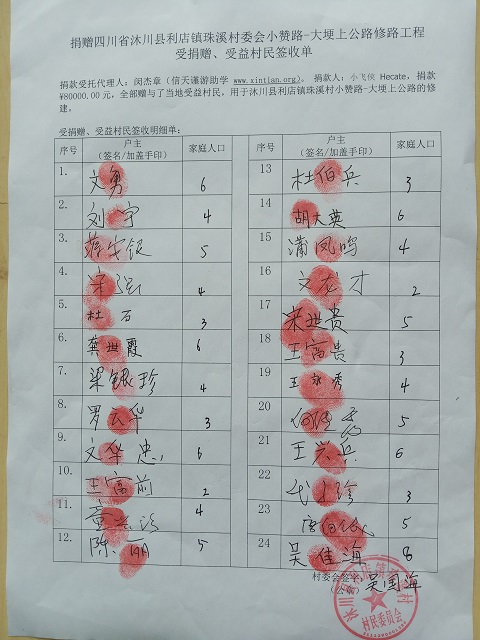 捐赠四川省沐川县利店镇珠溪村委会小赞路-大埂上公路修路工程
受捐赠、受益村民签收单
捐款受托代理人：闵杰章（信天谨游助学 www.xintian.org）。 捐款人：小飞侠 Hecate，捐款
¥80000.00 元，全部赠与了当地受益村民，用于沐川县利店镇珠溪村小赞路-大埂上公路的修
建。
受捐赠、受益村民签收明细单：
序号 户主（签名/加盖手印） 家庭人口 序号 户主（签名/加盖手印） 家庭人口
1. 文勇 6 13 杜伯兵 3
2. 刘宇 4 14 胡大英 6
3. 蒋安银 5 15 蒲凤鸣 4
4. 宋强 4 16 文龙才 2
5. 杜石 3 17 宋世贵 5
6. 龚世霞 6 18 王富贵 3
7. 梁银珍 4 19 王永秀 4
8. 罗云华 3 20 5
9. 文华忠 6 21 王兴兵 6
10. 王富前 2 22 3
11. 4 23 5
12. 陈 5 24 吴佳海 8
村委会签字： 吴国海
（公章）
村民委员会